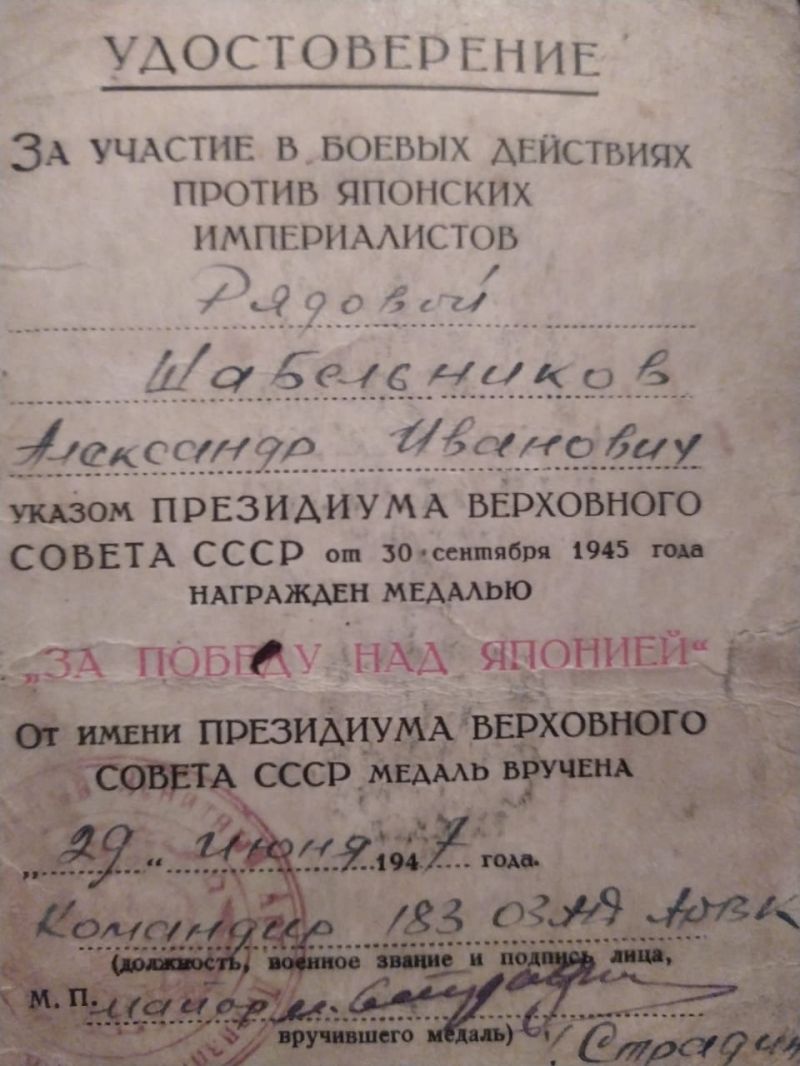 УДОСТОВЕРЕНИЕ
ЗА УЧАСТИЕ В БОЕВЫХ ДЕЙСТВИЯХ
ПРОТИВ ЯПОНСКИХ
ИМПЕРИАЛИСТОВ
Рядовой
Шабельников
Александр Иванович
УКАЗОМ ПРЕЗИДИУМА ВЕРХОВНОГО
СОВЕТА СССР от 30 сентября 1945 года
НАГРАЖДЕН МЕДАЛЬЮ
„ЗА ПОБЕДУ НАД ЯПОНИЕЙ“
ОТ ИМЕНИ ПРЕЗИДИУМА ВЕРХОВНОГО
СОВЕТА СССР МЕДАЛЬ ВРУЧЕНА
„29“ июня 1947 года.
Командир 183 ОЗАД
(должность, военное звание и подпись лица,
М. П. майор
вручившего медаль)